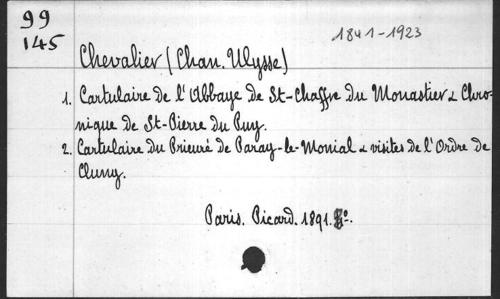 99
145
1841-1923
Chevalier (Chan. Ulysse)
1. Cartulaire de l'Abbaye de St-Chaffre du Monastier & Chro-
nique de St-Pierre du Puy.
2. Cartulaire du Prieuré de Paray-le-Monial & visites de l'Ordre de
Cluny.
Paris. Picard. 1891.